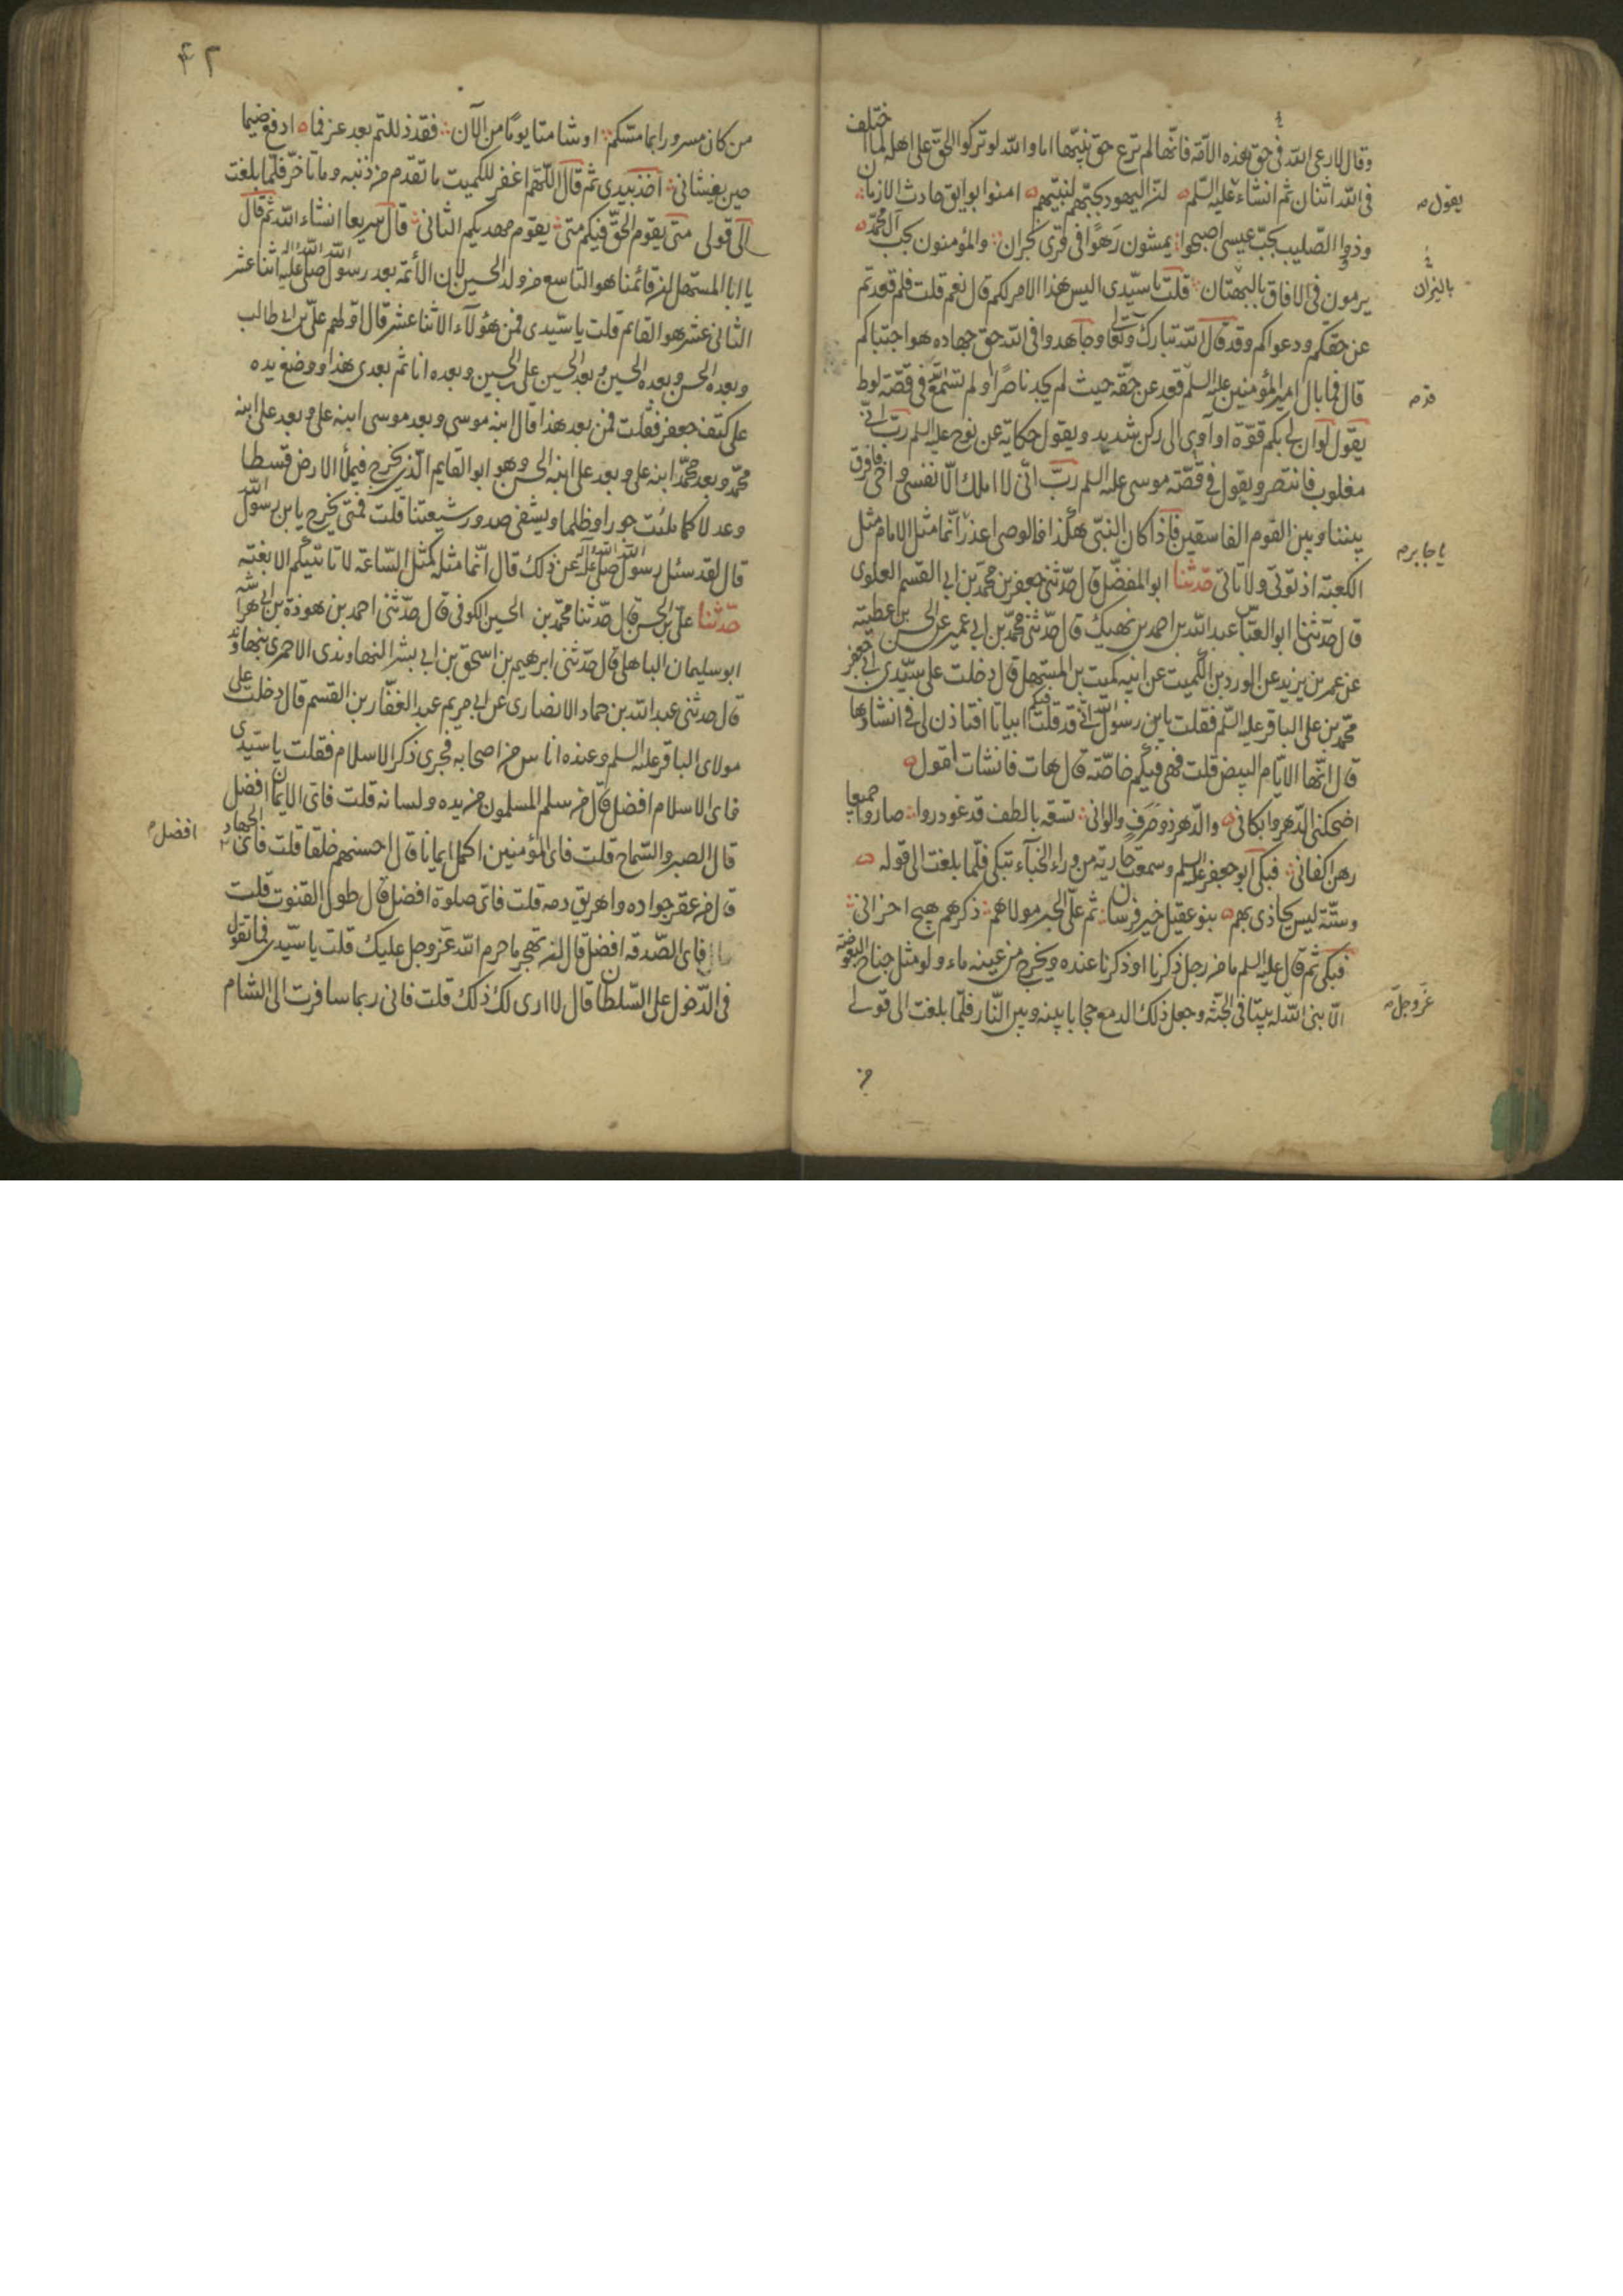 وقال لا رعى الله فى حق هذه الامة فانها لم ترع حق نبيها اما والله لو تركوا الحق على اهله لما اختلف
فى الله اثنان ثم انشاء عليه السلم ان اليهود بحبهم لنبيهم امنوا بوايق حادث الازمان
يقول
وذوا الصليب بحب عيسى اصبحوا يمشون رهوا فى قرى نجران والمؤمنون بحب آل محمد
يرمون فى الافاق بالبهتان قلت يا سيدى اليس هذا الامر لكم قال نعم قلت فلم قعدتم
بالنيران
عن حقكم ودعواكم وقد قال الله تبارك وتعالى وجاهدوا فى الله حق جهاده هو اجتباكم
قال فما بال امير المؤمنين عليه السلم قعد عن حقه حيث لم يجد ناصرا او لم تسمع فى قصة لوط
يقول لو ان لى بكم قوة او آوى الى ركن شديد ويقول حكاية عن نوح عليه السلم رب انى
مغلوب فانتصر ويقول فى قصة موسى عليه السلم رب انى لا املك الا نفسى واخى فافرق
بيننا وبين القوم الفاسقين فاذا كان النبى هكذا فالوصى اعذر انما مثل الامام مثل
يا جابر
الكعبة اذ تؤتى ولا تاتى حدثنا ابو المفضل قال حدثنى جعفر بن محمد بن ابى القسم العلوى
قال حدثنا ابو العباس عبد الله بن احمد بن نهيك قال حدثنى محمد بن ابى عمير عن الحسن بن عطية
عن عمر بن يزيد عن الورد بن الكميت عن ابيه كميت بن المستهل قال دخلت على سيدى ابى جعفر
محمد بن على الباقر عليه السلم فقلت يا بن رسول الله انى قد قلت فيكم ابياتا افتاذن لى فى انشادها
قال انها الايام البيض قلت فهى فيكم خاصة قال هات فانشات اقول
اضحكنى الدهر وابكانى والدهر ذو صرف والوانى تسقه بالطف قد غودروا صاروا جميعا
رهن اكفانى فبكى ابو جعفر عليه السلم وسمعت جارية من وراء الخباء تبكى فلما بلغت الى قوله
وستة ليس يجاذى بهم بنو عقيل خير فرسان ثم على الخير مولاهم ذكرهم هيج احزانى
فبكى ثم قال عليه السلم ما من رجل ذكرنا او ذكرنا عنده ويخرج من عينيه ماء ولو مثل جناح البعوضة
الا بنى الله له بيتا فى الجنة وجعل ذلك الدمع حجابا بينه وبين النار فلما بلغت الى قولى
عز وجل
من
٤٢
من كان مسرورا بما مسكم او شامتا يوما من الآن فقد ذللتم بعد عز فما ادفع ضيما
حين يغشانى اخذ بيدى ثم قال اللهم اغفر للكميت ما تقدم من ذنبه وما تاخر فلما بلغت
الى قولى متى يقوم الحق فيكم متى يقوم مهديكم الثانى قال سريعا انشاء الله ثم قال
يا ابا المستهل ان قائمنا هو التاسع من ولد الحسين لان الأئمة بعد رسول الله صلى الله عليه واله اثنا عشر
الثانى عشر هو القائم قلت يا سيدى فمن هؤلاء الاثنا عشر قال اولهم على بن ابى طالب
وبعده الحسن وبعده الحسين وبعد الحسين على بن الحسين وبعده انا ثم بعدى هذا ووضع يده
على كتف جعفر فقلت فمن بعد هذا قال ابنه موسى وبعد موسى ابنه على وبعد على ابنه
محمد وبعد محمد ابنه على وبعد على ابنه الحسن وهو ابو القايم الذى يخرج فيملأ الارض قسطا
وعدلا كما ملئت جورا وظلما ويشفى صدور شيعتنا قلت فمتى يخرج يا بن رسول الله
قال لقد سئل رسول الله صلى الله عليه واله عن ذلك قال انما مثله كمثل الساعة لا تاتيكم الا بغتة
حدثنا على بن الحسن قال حدثنا محمد بن الحسين الكوفى قال حدثنى احمد بن هوذة بن ابى هراسة
ابو سليمان الباهلى قال حدثنى ابرهيم بن اسحق بن ابى بشر النهاوندى الاحمرى بنهاوند
قال حدثنى عبد الله بن حماد الانصارى عن ابى مريم عبد الغفار بن القسم قال دخلت على
مولاى الباقر عليه السلم وعنده اناس من اصحابه فجرى ذكر الاسلام فقلت يا سيدى
فاى الاسلام افضل قال من سلم المسلمون من يده ولسانه قلت فاى الايمان افضل
قال الصبر والسماح قلت فاى المؤمنين اكمل ايمانا قال احسنهم خلقا قلت فاى الجهاد
افضل
قال من عقر جواده واهريق دمه قلت فاى صلوة افضل قال طول القنوت قلت
فاى الصدقة افضل قال ان تهجر ما حرم الله عز وجل عليك قلت يا سيدى فما تقول
فى الدخول على السلطان قال لا ارى لك ذلك قلت فانى ربما سافرت الى الشام